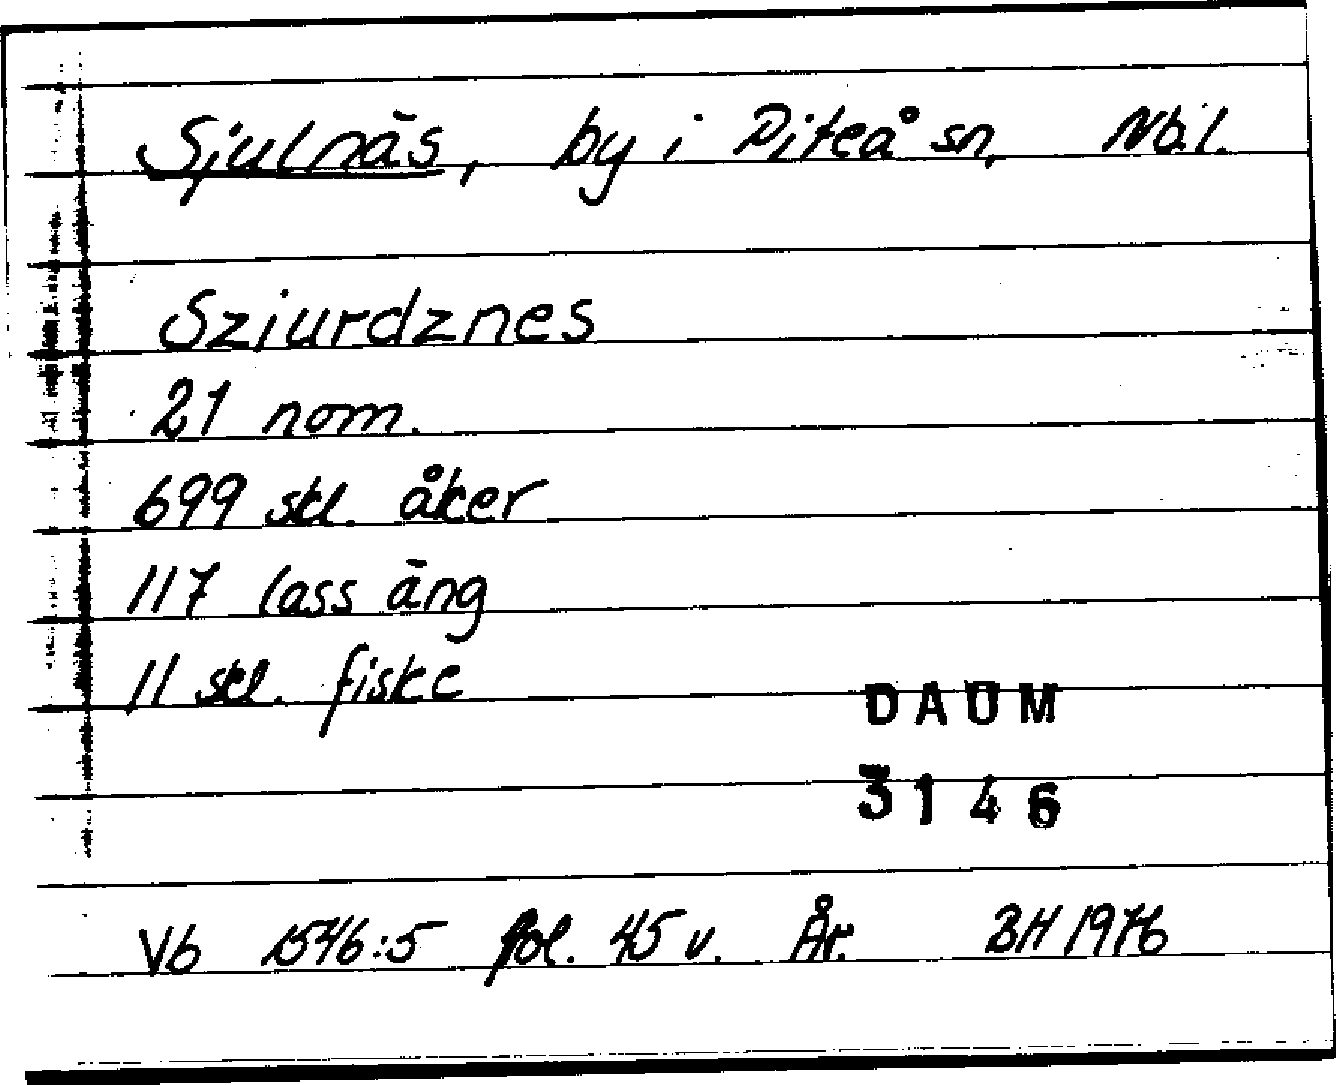 Sjulnäs, by i Piteå sn, Nb.l.
Sziurdznes
21 nom.
699 skl. åker
117 lass äng
11 skl. fiske
DAUM
3146
Vb 1546:5 fol. 45 v. Är. BH 1976